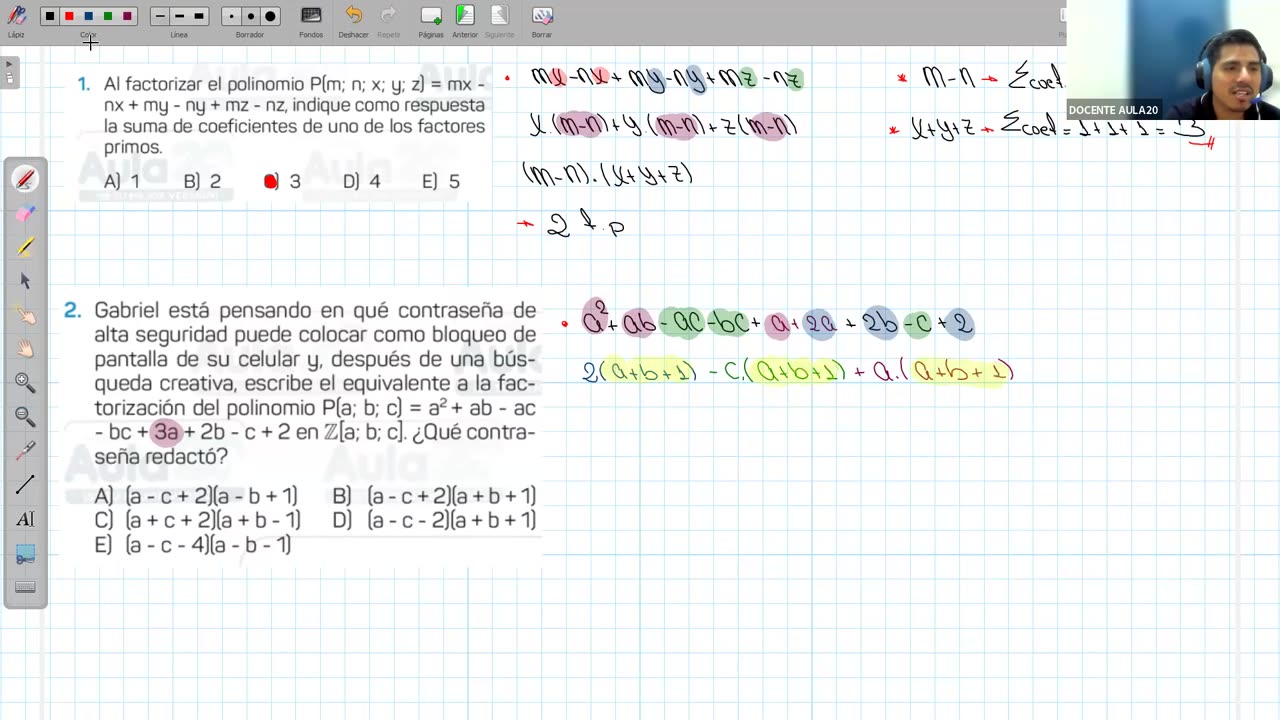 Lápiz Color Línea Borrador Fondos Deshacer Repetir Páginas Anterior Siguiente Borrar
DOCENTE AULA20
1. Al factorizar el polinomio P(m; n; x; y; z) = mx -
nx + my - ny + mz - nz, indique como respuesta
la suma de coeficientes de uno de los factores
primos.
A) 1 B) 2 ) 3 D) 4 E) 5
• mx - nx + my - ny + mz - nz
x (m-n) + y (m-n) + z (m-n)
(m-n) . (x+y+z)
→ 2 f.p
* m - n → Σcoef.
* x+y+z → Σcoef = 1+1+1 = 3
2. Gabriel está pensando en qué contraseña de
alta seguridad puede colocar como bloqueo de
pantalla de su celular y, después de una bús-
queda creativa, escribe el equivalente a la fac-
torización del polinomio P(a; b; c) = a² + ab - ac
- bc + 3a + 2b - c + 2 en ℤ[a; b; c]. ¿Qué contra-
seña redactó?
A) (a - c + 2)(a - b + 1) B) (a - c + 2)(a + b + 1)
C) (a + c + 2)(a + b - 1) D) (a - c - 2)(a + b + 1)
E) (a - c - 4)(a - b - 1)
• a² + ab - ac - bc + a + 2a + 2b - c + 2
2(a+b+1) - c.(a+b+1) + a.(a+b+1)
AI